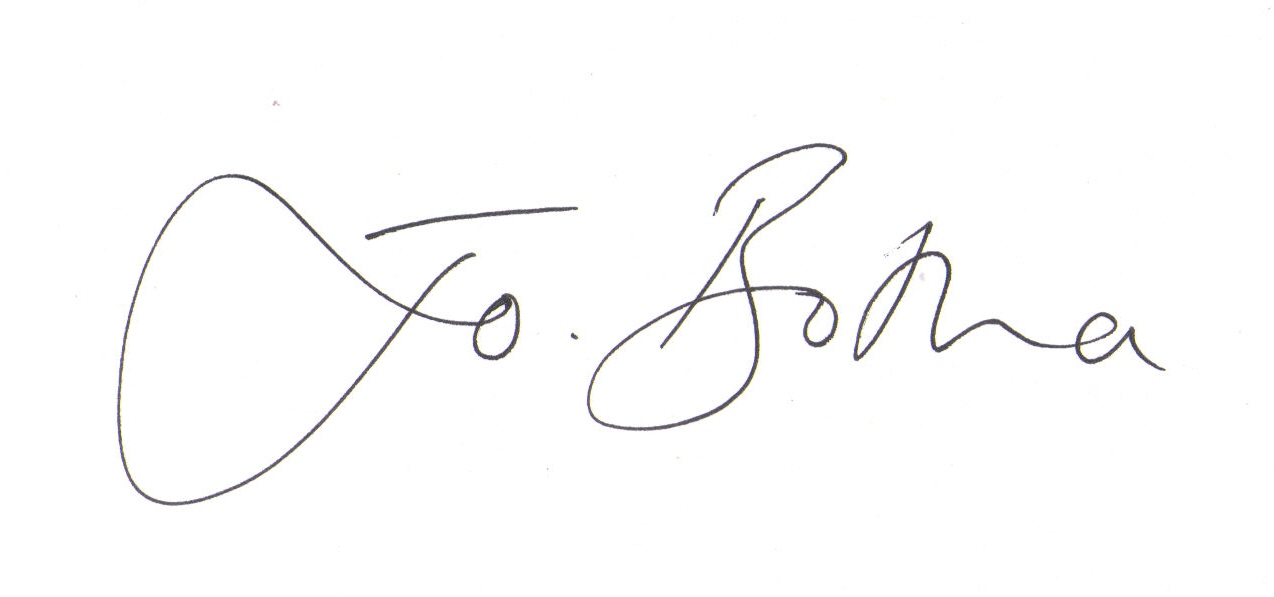 Jo. Botha